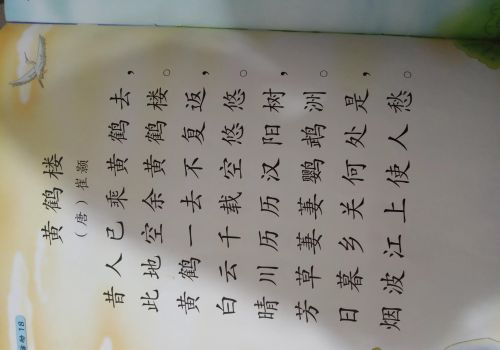 黄鹤楼
（唐）崔颢
昔人已乘黄鹤去，
此地空余黄鹤楼。
黄鹤一去不复返，
白云千载空悠悠。
晴川历历汉阳树，
芳草萋萋鹦鹉洲。
日暮乡关何处是，
烟波江上使人愁。
18